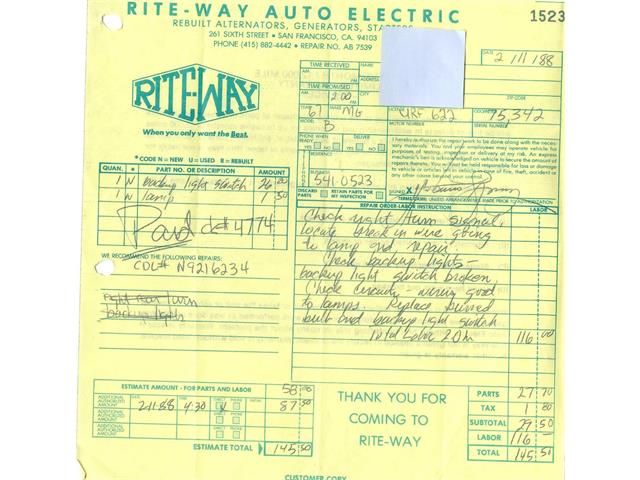 RITE-WAY AUTO ELECTRIC
REBUILT ALTERNATORS, GENERATORS, STARTERS
261 SIXTH STREET • SAN FRANCISCO, CA. 94103
PHONE (415) 882-4442 • REPAIR NO. AB 7539
1523
DATE 2/11/88
RITE-WAY
When you only want the Best.
TIME RECEIVED
AM.
PM.
TIME PROMISED
AM.
PM. 2:00
NAME
ADDRESS
CITY
ZIP CODE
YEAR 67
MAKE MG
LICENSE URF 622
ODOMETER 75,342
MODEL B
MOTOR NUMBER
SERIAL NUMBER
PHONE WHEN READY
YES NO
DELIVER
YES NO
RESIDENCE
BUSINESS 541-0523
DISCARD PARTS
RETAIN PARTS FOR MY INSPECTION
I hereby authorize the repair work to be done along with necessary materials. You and your employees may operate vehicle for purposes of testing, inspection or delivery at my risk. An express mechanic's lien is acknowledged on vehicle to secure the amount of repairs thereto. You will not be held responsible for loss or damage to vehicle or articles left in vehicle in case of fire, theft, accident or any other cause beyond your control.
SIGNED X
TERMS: CASH UNLESS ARRANGEMENTS MADE PRIOR TO AUTHORIZATION
* CODE N = NEW U = USED R = REBUILT
QUAN. * PART NO. OR DESCRIPTION AMOUNT
1 N backup light switch 26 20
1 N lamp 1 50
Paid ck# 4774
WE RECOMMEND THE FOLLOWING REPAIRS:
CDL# N9216234
right rear/turn
backup lights
REPAIR ORDER-LABOR INSTRUCTION LABOR
Check right/turn signal,
locate break in wire going
to lamp and repair.
Check backup lights –
backup light switch broken,
Check circuits – wiring good
to lamps. Replace burned
bulb and backup light switch
total labor 2.0 hr 116 00
ESTIMATE AMOUNT - FOR PARTS AND LABOR 58.00
ADDITIONAL AUTHORIZED AMOUNT
DATE 2-11-88 TIME 4:30 DIRECT PHONE INITIAL 87.50
ADDITIONAL AUTHORIZED AMOUNT
DATE TIME DIRECT PHONE INITIAL
ESTIMATE TOTAL 145.50
THANK YOU FOR
COMING TO
RITE-WAY
PARTS 27 70
TAX 1 80
SUBTOTAL 29 50
LABOR 116 –
TOTAL 145 50
CUSTOMER COPY